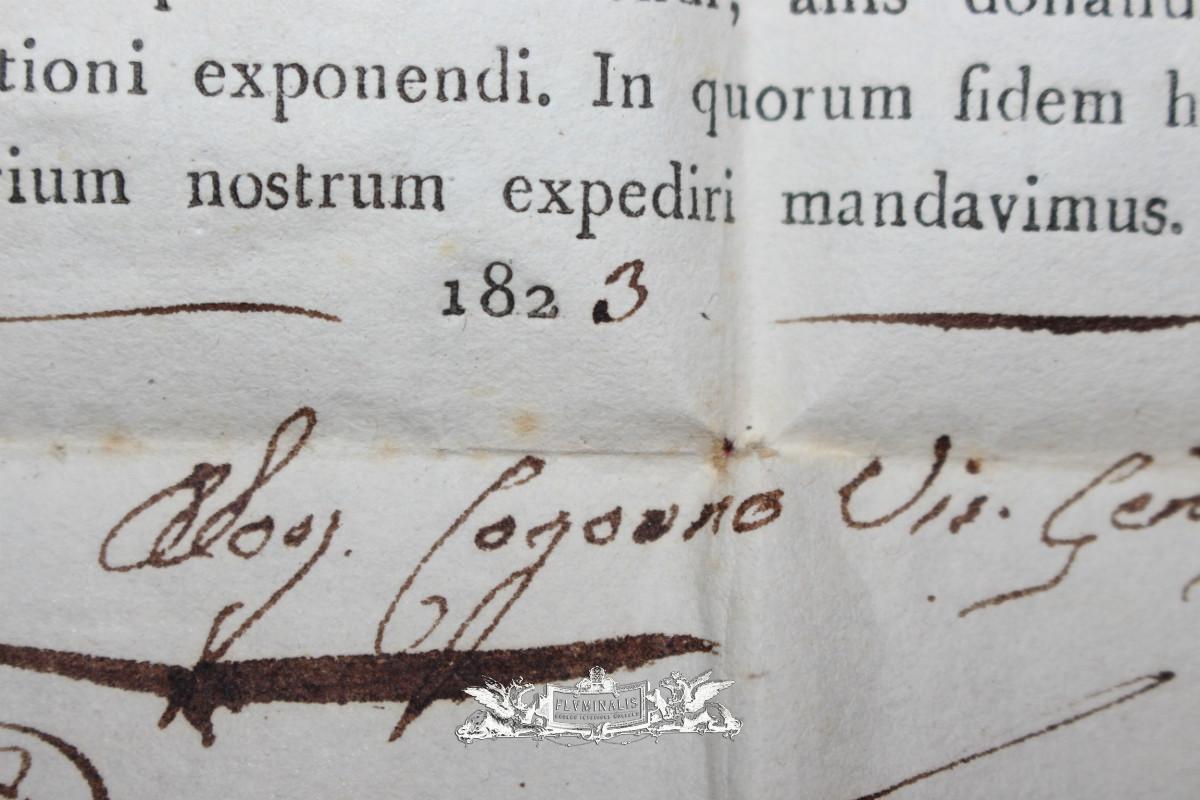 tioni exponendi. In quorum fidem h
rium nostrum expediri mandavimus.
1823
Aloy. Cogorno Vic. Gen
FLVMINALIS